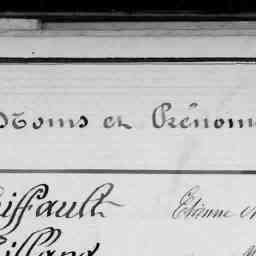 Noms et Prénoms
iffault Etienne
illand